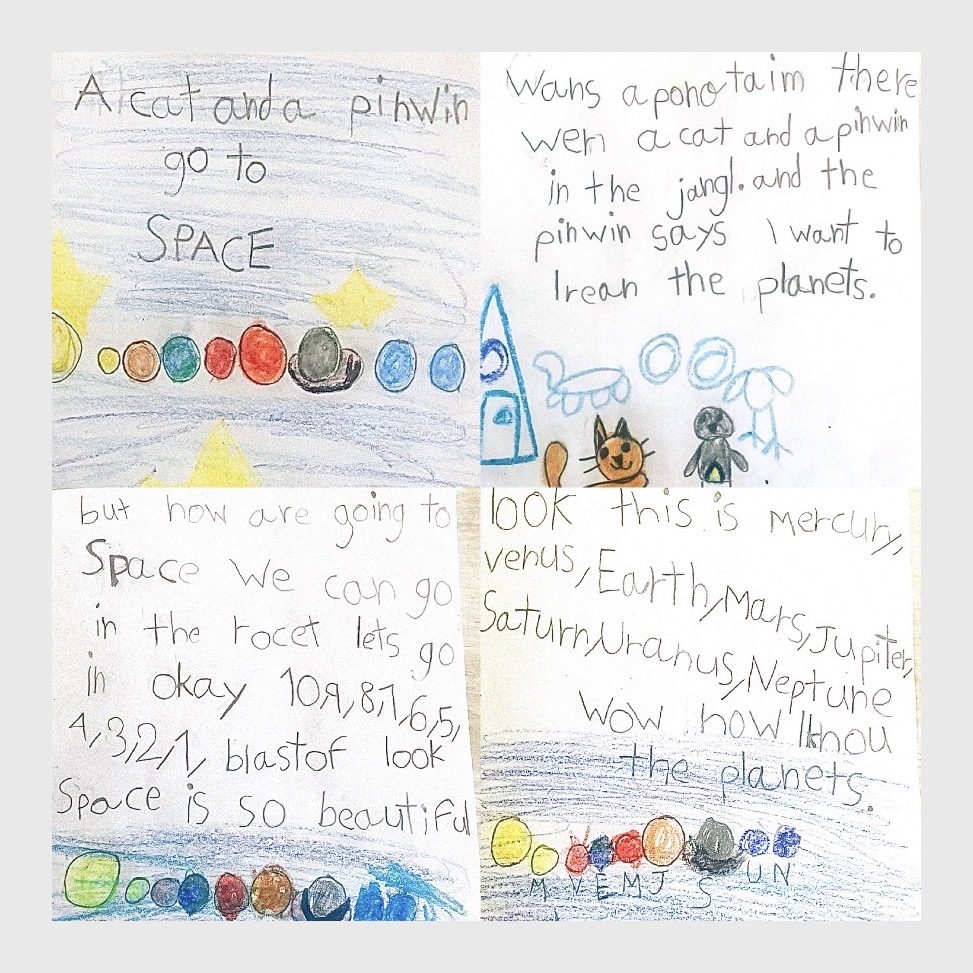 A cat and a pinwin
go to
SPACE
Wans a pono taim there
wen a cat and a pinwin
in the jangl. and the
pinwin says I want to
lrean the planets.
but how are going to
Space We can go
in the rocet lets go
in okay 10,9,8,7,6,5,
4,3,2,1, blastof look
Space is so beautiful
look this is mercury,
venus, Earth, Mars, Jupiter,
Saturn, Uranus, Neptune
Wow now I knou
the planets.
M V E M J S U N